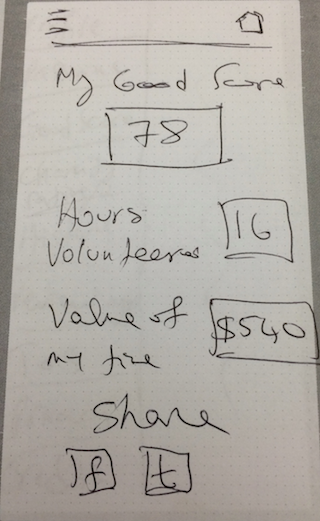 My Good Score
78
Hours
16
Volunteered
Value of
$540
my time
Share
f t